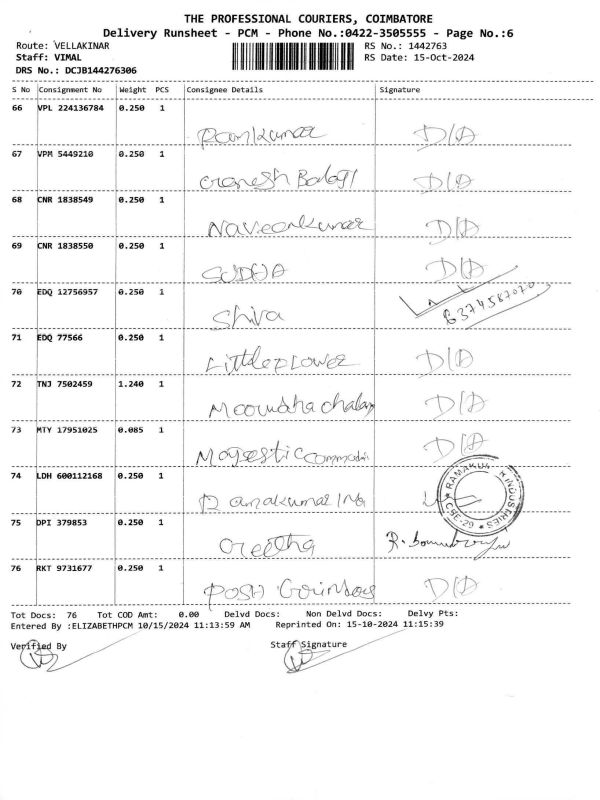 THE PROFESSIONAL COURIERS, COIMBATORE
Delivery Runsheet - PCM - Phone No.:0422-3505555 - Page No.:6
Route: VELLAKINAR RS No.: 1442763
Staff: VIMAL RS Date: 15-Oct-2024
DRS No.: DCJB144276306
S No Consignment No Weight PCS Consignee Details Signature
66 VPL 224136784 0.250 1
Ramkumar D/A
67 VPM 5449210 0.250 1
Ganesh Balaji D/A
68 CNR 1838549 0.250 1
Naveenkumar D/A
69 CNR 1838550 0.250 1
SUDHA D/A
70 EDQ 12756957 0.250 1
Shiva 6374587070
71 EDQ 77566 0.250 1
Littleflower D/A
72 TNJ 7502459 1.240 1
D/A
73 MTY 17951025 0.085 1
Majestic D/A
74 LDH 600112168 0.250 1
RAMAKU INDUSTRIES CBE-29
75 DPI 379853 0.250 1
Geetha
76 RKT 9731677 0.250 1
POSH D/A
Tot Docs: 76 Tot COD Amt: 0.00 Delvd Docs: Non Delvd Docs: Delvy Pts:
Entered By :ELIZABETHPCM 10/15/2024 11:13:59 AM Reprinted On: 15-10-2024 11:15:39
Verified By Staff Signature